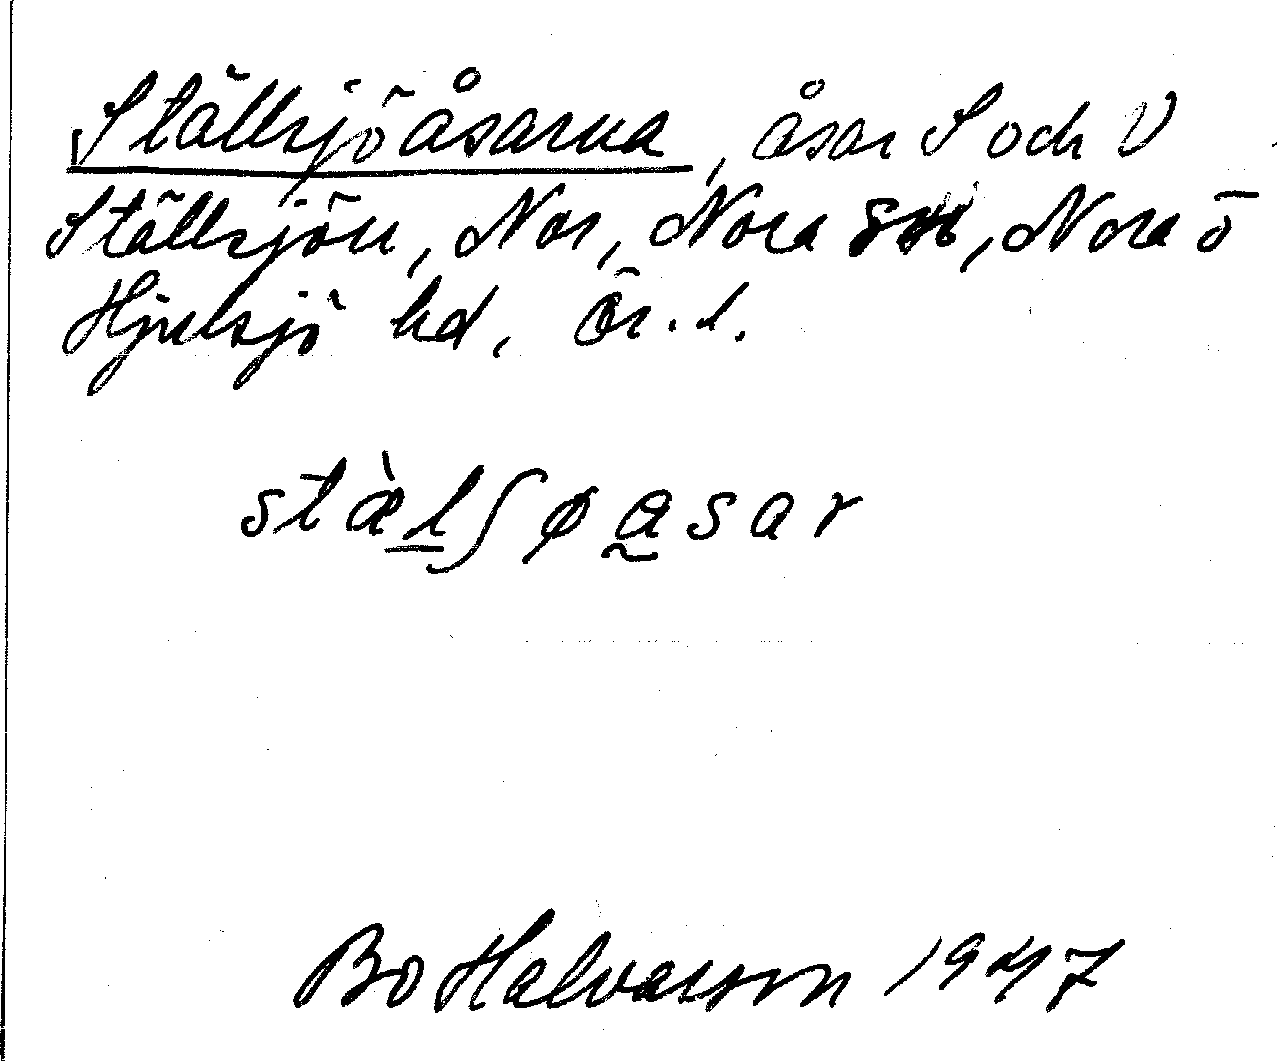 Ställsjöåsarna, åsar S och V
Ställsjön, Nor, Nora sn, Nora o
Hjulsjö hd, Ör. l.
stæ̀lʃøa̰sar
Bo Halvarson 1947